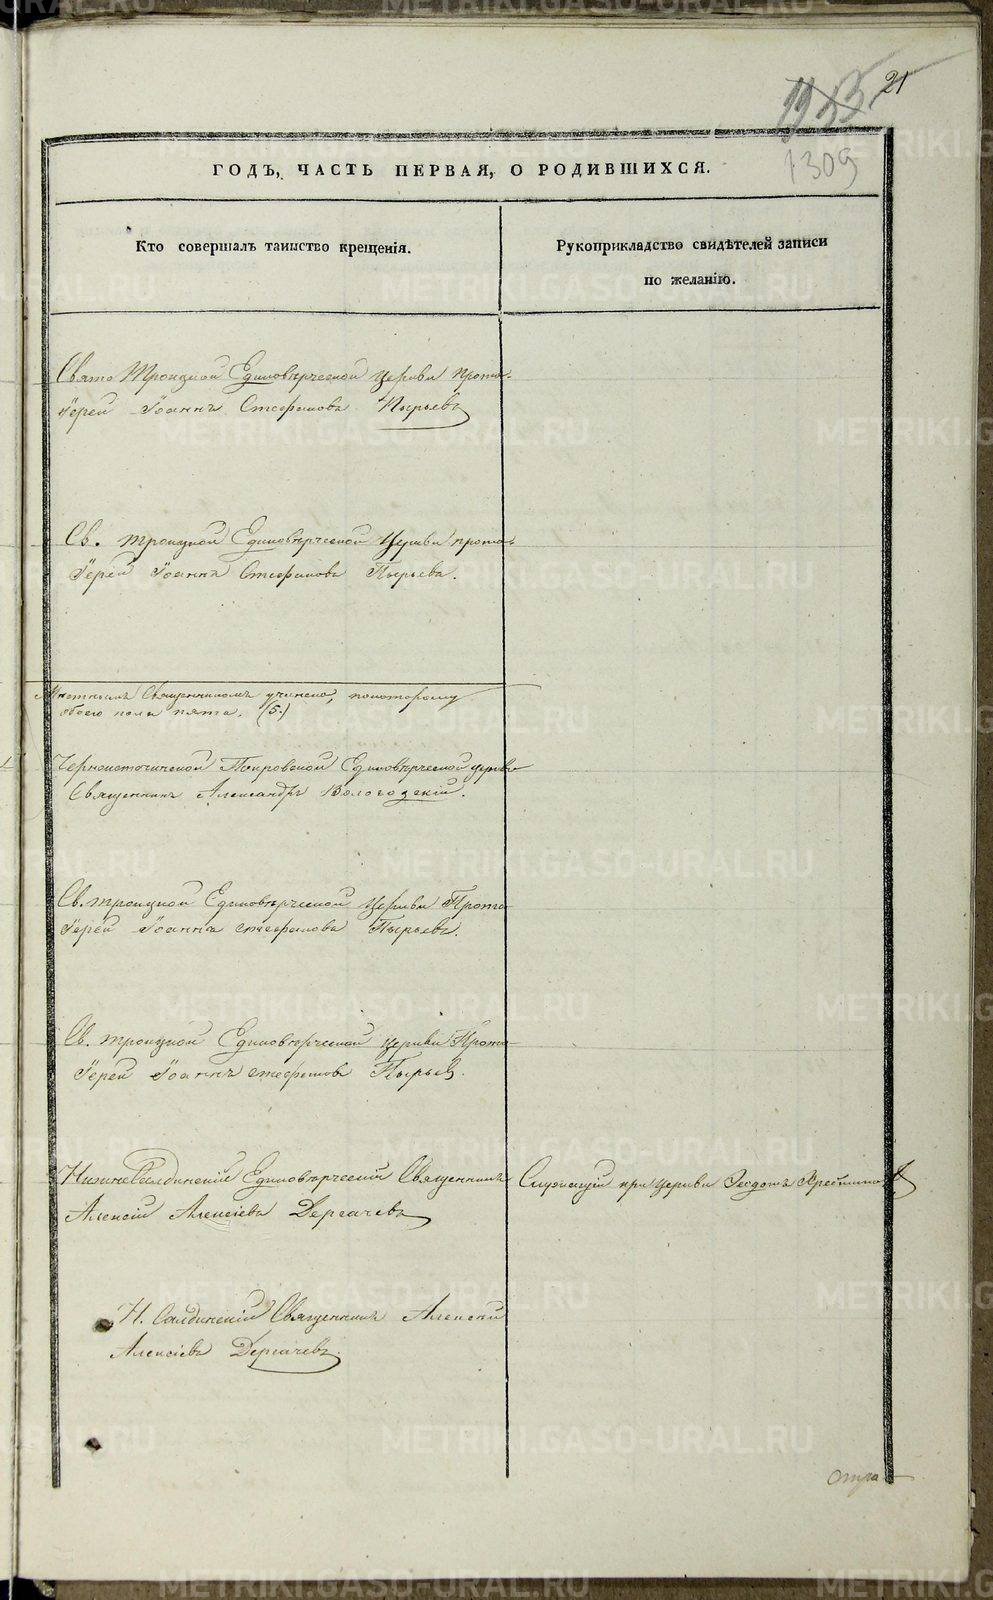 21
1309
ГОДЪ, ЧАСТЬ ПЕРВАЯ, О РОДИВШИХСЯ.
Кто совершалъ таинство крещенія.
Рукоприкладство свидѣтелей записи
по желанію.
Свято Троицкой Единовѣрческой Церкви Прото-
Іерей Іоаннъ Стефановъ Пырьевъ
Св. Троицкой Единовѣрческой Церкви прото-
Іерей Іоаннъ Стефановъ Пырьевъ.
Священникомъ учинено, покоторому
обоего пола пята. (5.)
Черноисточинской Покровской Единовѣрческой церкви
Священникъ Александръ Вологодскій.
Св. троицкой Единовѣрческой Церкви Прото-
Іерей Іоаннъ стефановъ Пырьевъ.
Св. троицкой Единовѣрческой церкви Прото-
Іерей Іоаннъ стефановъ Пырьевъ.
НижнеСалдинскій Единовѣрческій Священникъ
Алексій Алексіевъ Дергачевъ
Служащій при Церкви Ѳедотъ
Н. Салдинскій Священникъ Алексій
Алексіевъ Дергачевъ.
METRIKI.GASO-URAL.RU